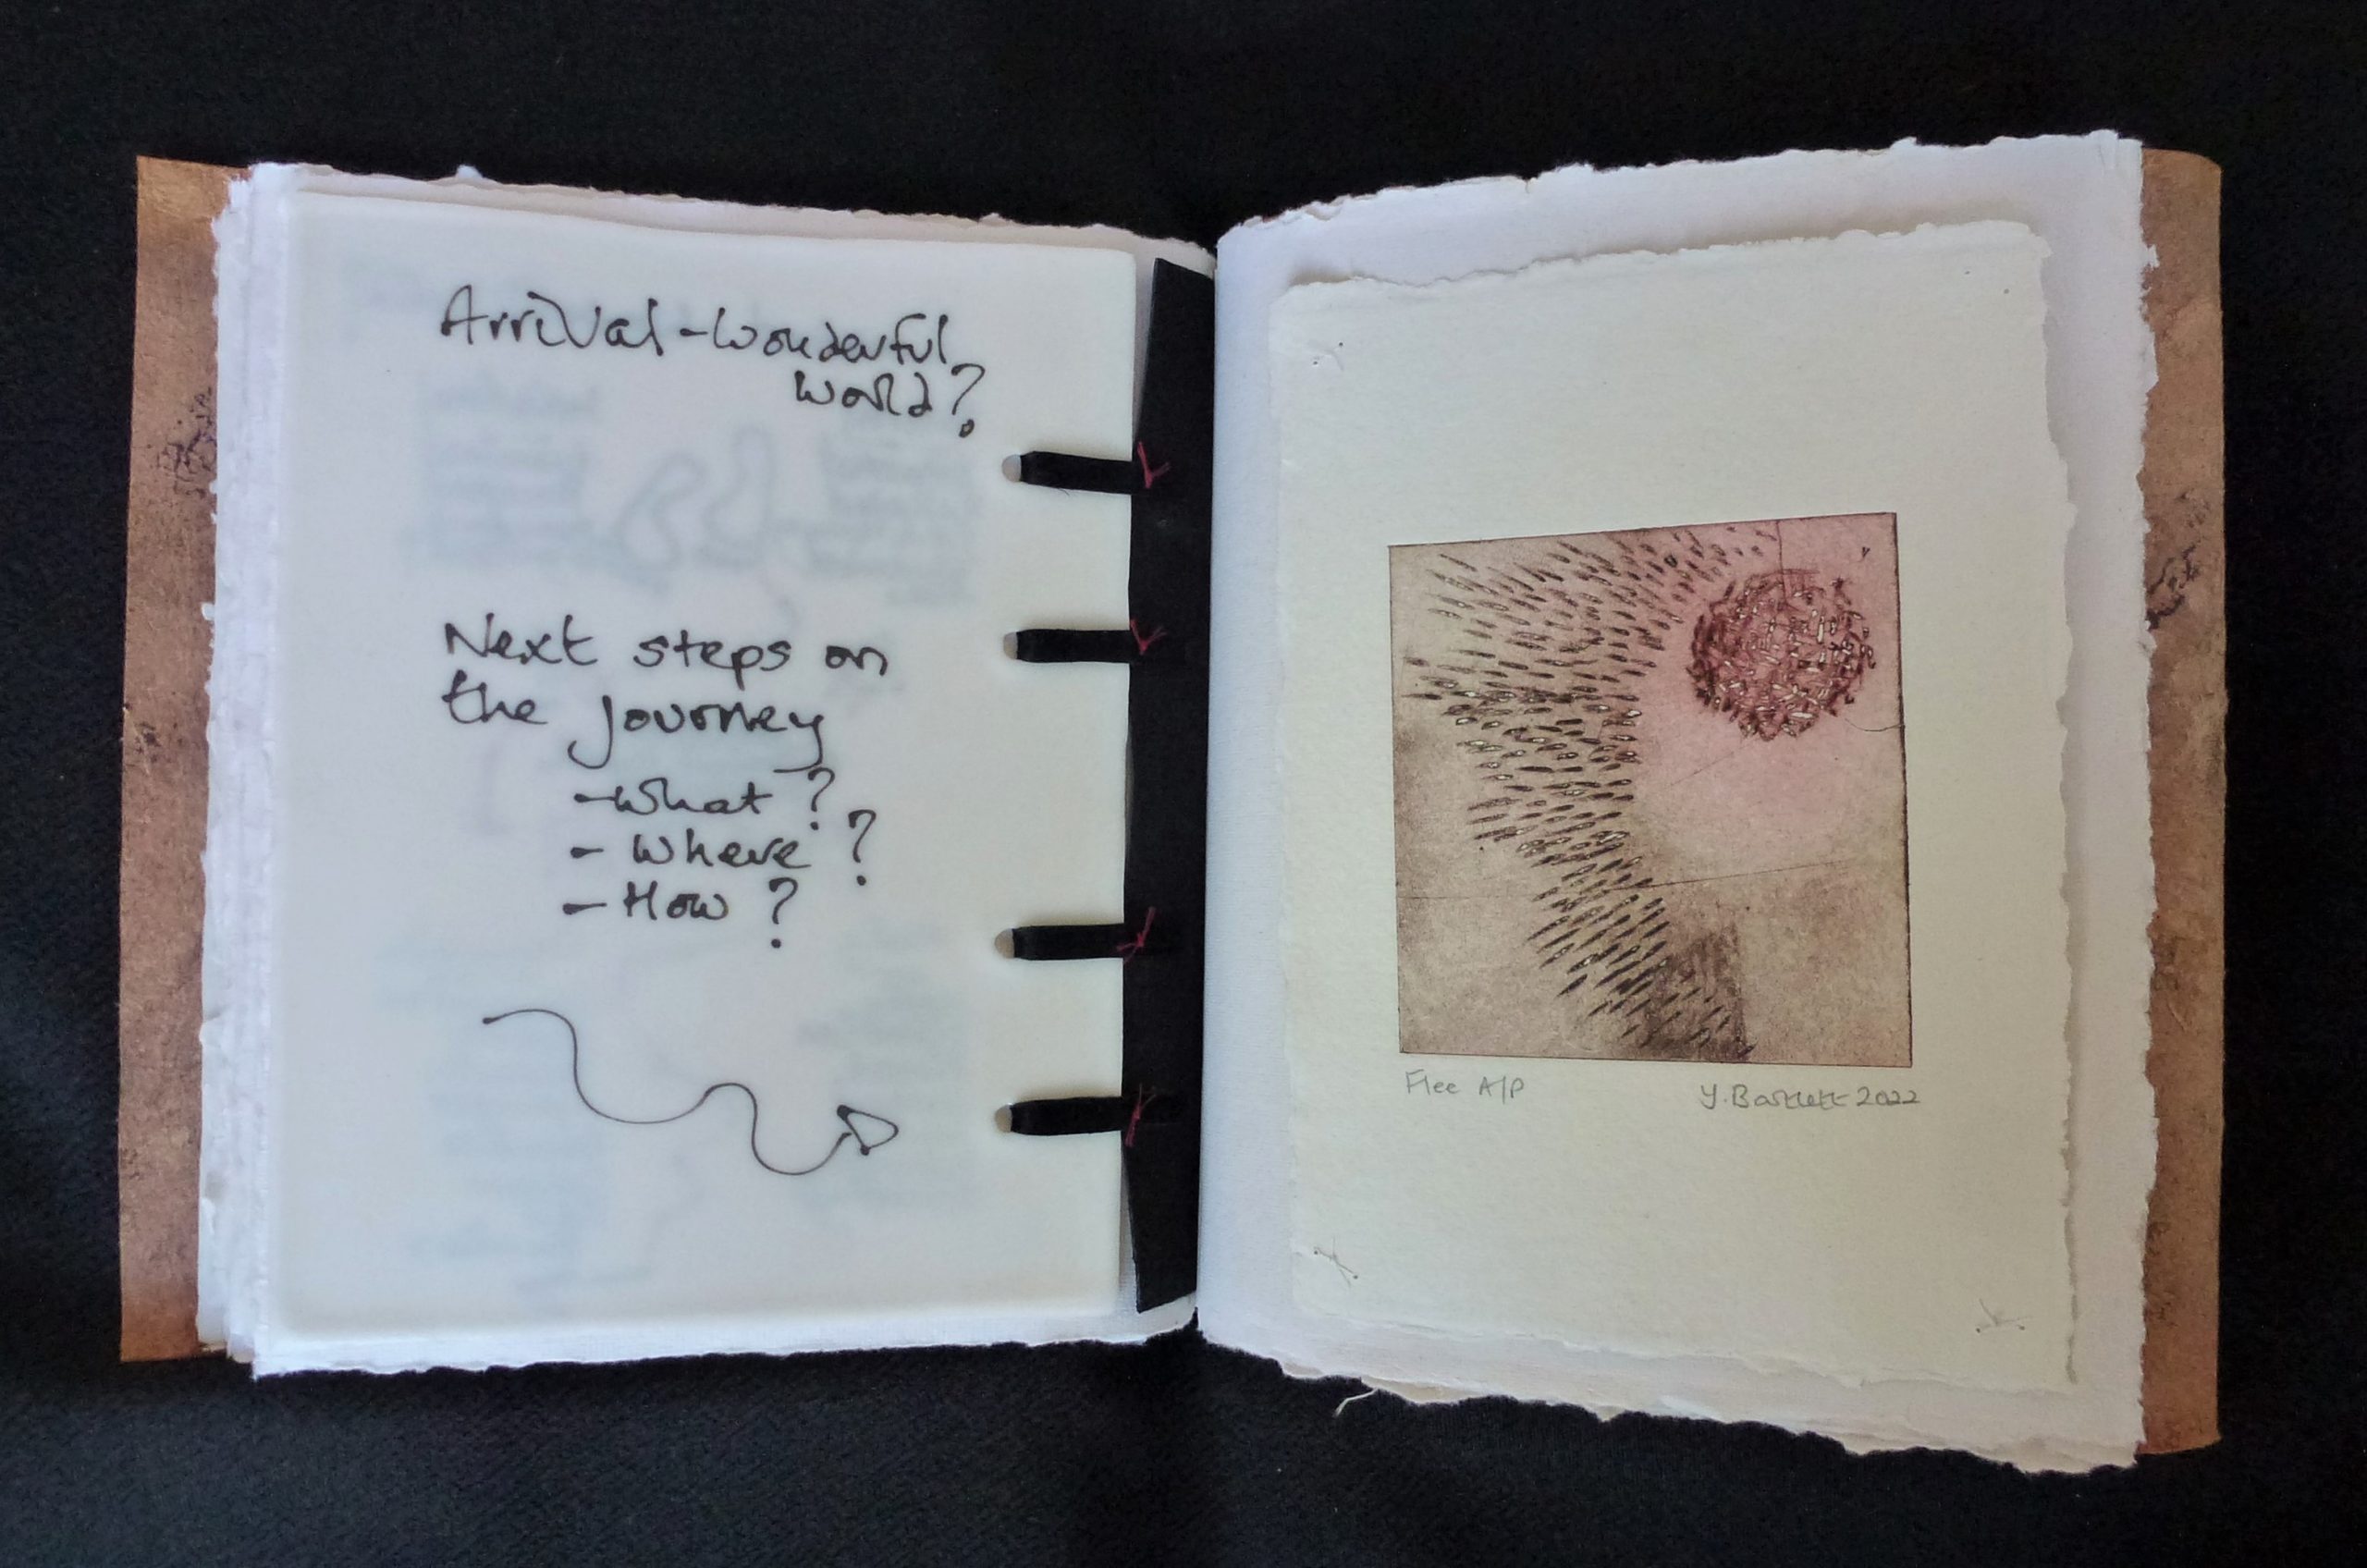 Arrival - Wonderful
World?
Next steps on
the journey
- What?
- Where?
- How?
Flee A/P
Y. Bartlett 2022